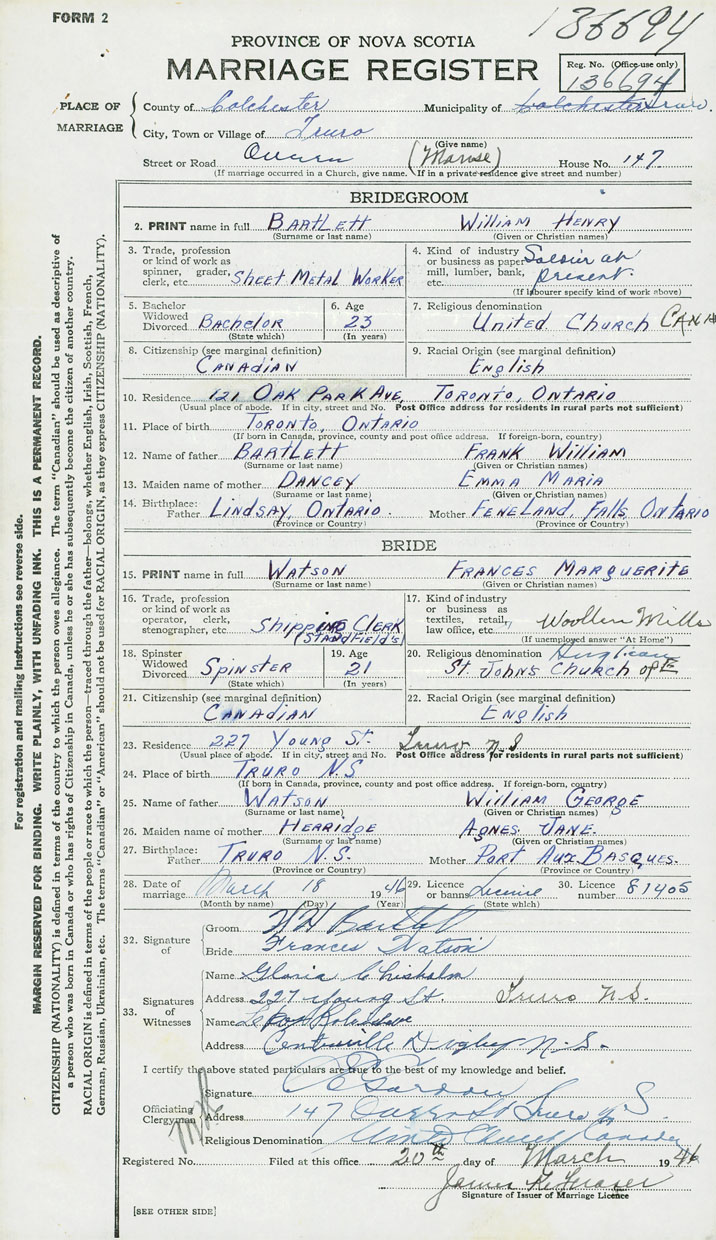 FORM 2
136694
PROVINCE OF NOVA SCOTIA
MARRIAGE REGISTER
Reg. No. (Office use only)
136694
PLACE OF MARRIAGE
County of Colchester Municipality of Colchester Truro.
City, Town or Village of Truro
(Give name)
Street or Road Queen (Manse) House No. 147
(If marriage occurred in a Church, give name. If in a private residence give street and number)
BRIDEGROOM
2. PRINT name in full BARTLETT WILLIAM HENRY
(Surname or last name) (Given or Christian names)
3. Trade, profession or kind of work as spinner, grader, clerk, etc. SHEET METAL WORKER
4. Kind of industry or business as paper mill, lumber, bank, etc. Soldier at present
(If labourer specify kind of work above)
5. Bachelor Widowed Divorced BACHELOR
(State which)
6. Age 23
(In years)
7. Religious denomination
UNITED CHURCH CANADA
8. Citizenship (see marginal definition)
CANADIAN
9. Racial Origin (see marginal definition)
English
10. Residence 121 OAK PARK AVE, TORONTO, ONTARIO
(Usual place of abode. If in city, street and No. Post Office address for residents in rural parts not sufficient)
11. Place of birth TORONTO, ONTARIO
(If born in Canada, province, county and post office address. If foreign-born, country)
12. Name of father BARTLETT FRANK WILLIAM
(Surname or last name) (Given or Christian names)
13. Maiden name of mother DANCEY EMMA MARIA
(Surname or last name) (Given or Christian names)
14. Birthplace: Father LINDSAY, ONTARIO. Mother FENELAND FALLS ONTARIO
(Province or Country) (Province or Country)
BRIDE
15. PRINT name in full WATSON FRANCES MARGUERITE
(Surname or last name) (Given or Christian names)
16. Trade, profession or kind of work as operator, clerk, stenographer, etc. Shipping CLERK
STANDFIELD'S
17. Kind of industry or business as textiles, retail, law office, etc. Woollen Mills
(If unemployed answer "At Home")
18. Spinster Widowed Divorced SPINSTER
(State which)
19. Age 21
(In years)
20. Religious denomination Anglican
ST. JOHN'S CHURCH of E
21. Citizenship (see marginal definition)
CANADIAN
22. Racial Origin (see marginal definition)
ENGLISH
23. Residence 227 YOUNG ST. Truro N.S
(Usual place of abode. If in city, street and No. Post Office address for residents in rural parts not sufficient)
24. Place of birth TRURO N.S
(If born in Canada, province, county and post office address. If foreign-born, country)
25. Name of father WATSON WILLIAM GEORGE
(Surname or last name) (Given or Christian names)
26. Maiden name of mother HERRIDGE AGNES JANE.
(Surname or last name) (Given or Christian names)
27. Birthplace: Father TRURO N.S. Mother PORT AUX BASQUES.
(Province or Country) (Province or Country)
28. Date of marriage March 18 1946
(Month by name) (Day) (Year)
29. Licence or banns License
(State which)
30. Licence number 81405
32. Signature of
Groom W H Bartlett
Bride Frances Watson
33. Signatures of Witnesses
Name Gloria Chisholm
Address 227 Young St. Truro N.S.
Name
Address Centreville Digby N.S.
I certify the above stated particulars are true to the best of my knowledge and belief.
Officiating Clergyman
Signature Gardon
Address 147 Queen St Truro N.S.
Religious Denomination United Church Canada
Registered No. Filed at this office 20th day of March 1946
James
Signature of Issuer of Marriage Licence
[SEE OTHER SIDE]
For registration and mailing instructions see reverse side.
MARGIN RESERVED FOR BINDING. WRITE PLAINLY, WITH UNFADING INK. THIS IS A PERMANENT RECORD.
CITIZENSHIP (NATIONALITY) is defined in terms of the country to which the person owes allegiance. The term "Canadian" should be used as descriptive of
a person who was born in Canada or who has rights of Citizenship in Canada, unless he or she has subsequently become the citizen of another country.
RACIAL ORIGIN is defined in terms of the people or race to which the person—traced through the father—belongs, whether English, Irish, Scottish, French,
German, Russian, Ukrainian, etc. The terms "Canadian" or "American" should not be used for RACIAL ORIGIN, as they express CITIZENSHIP (NATIONALITY).